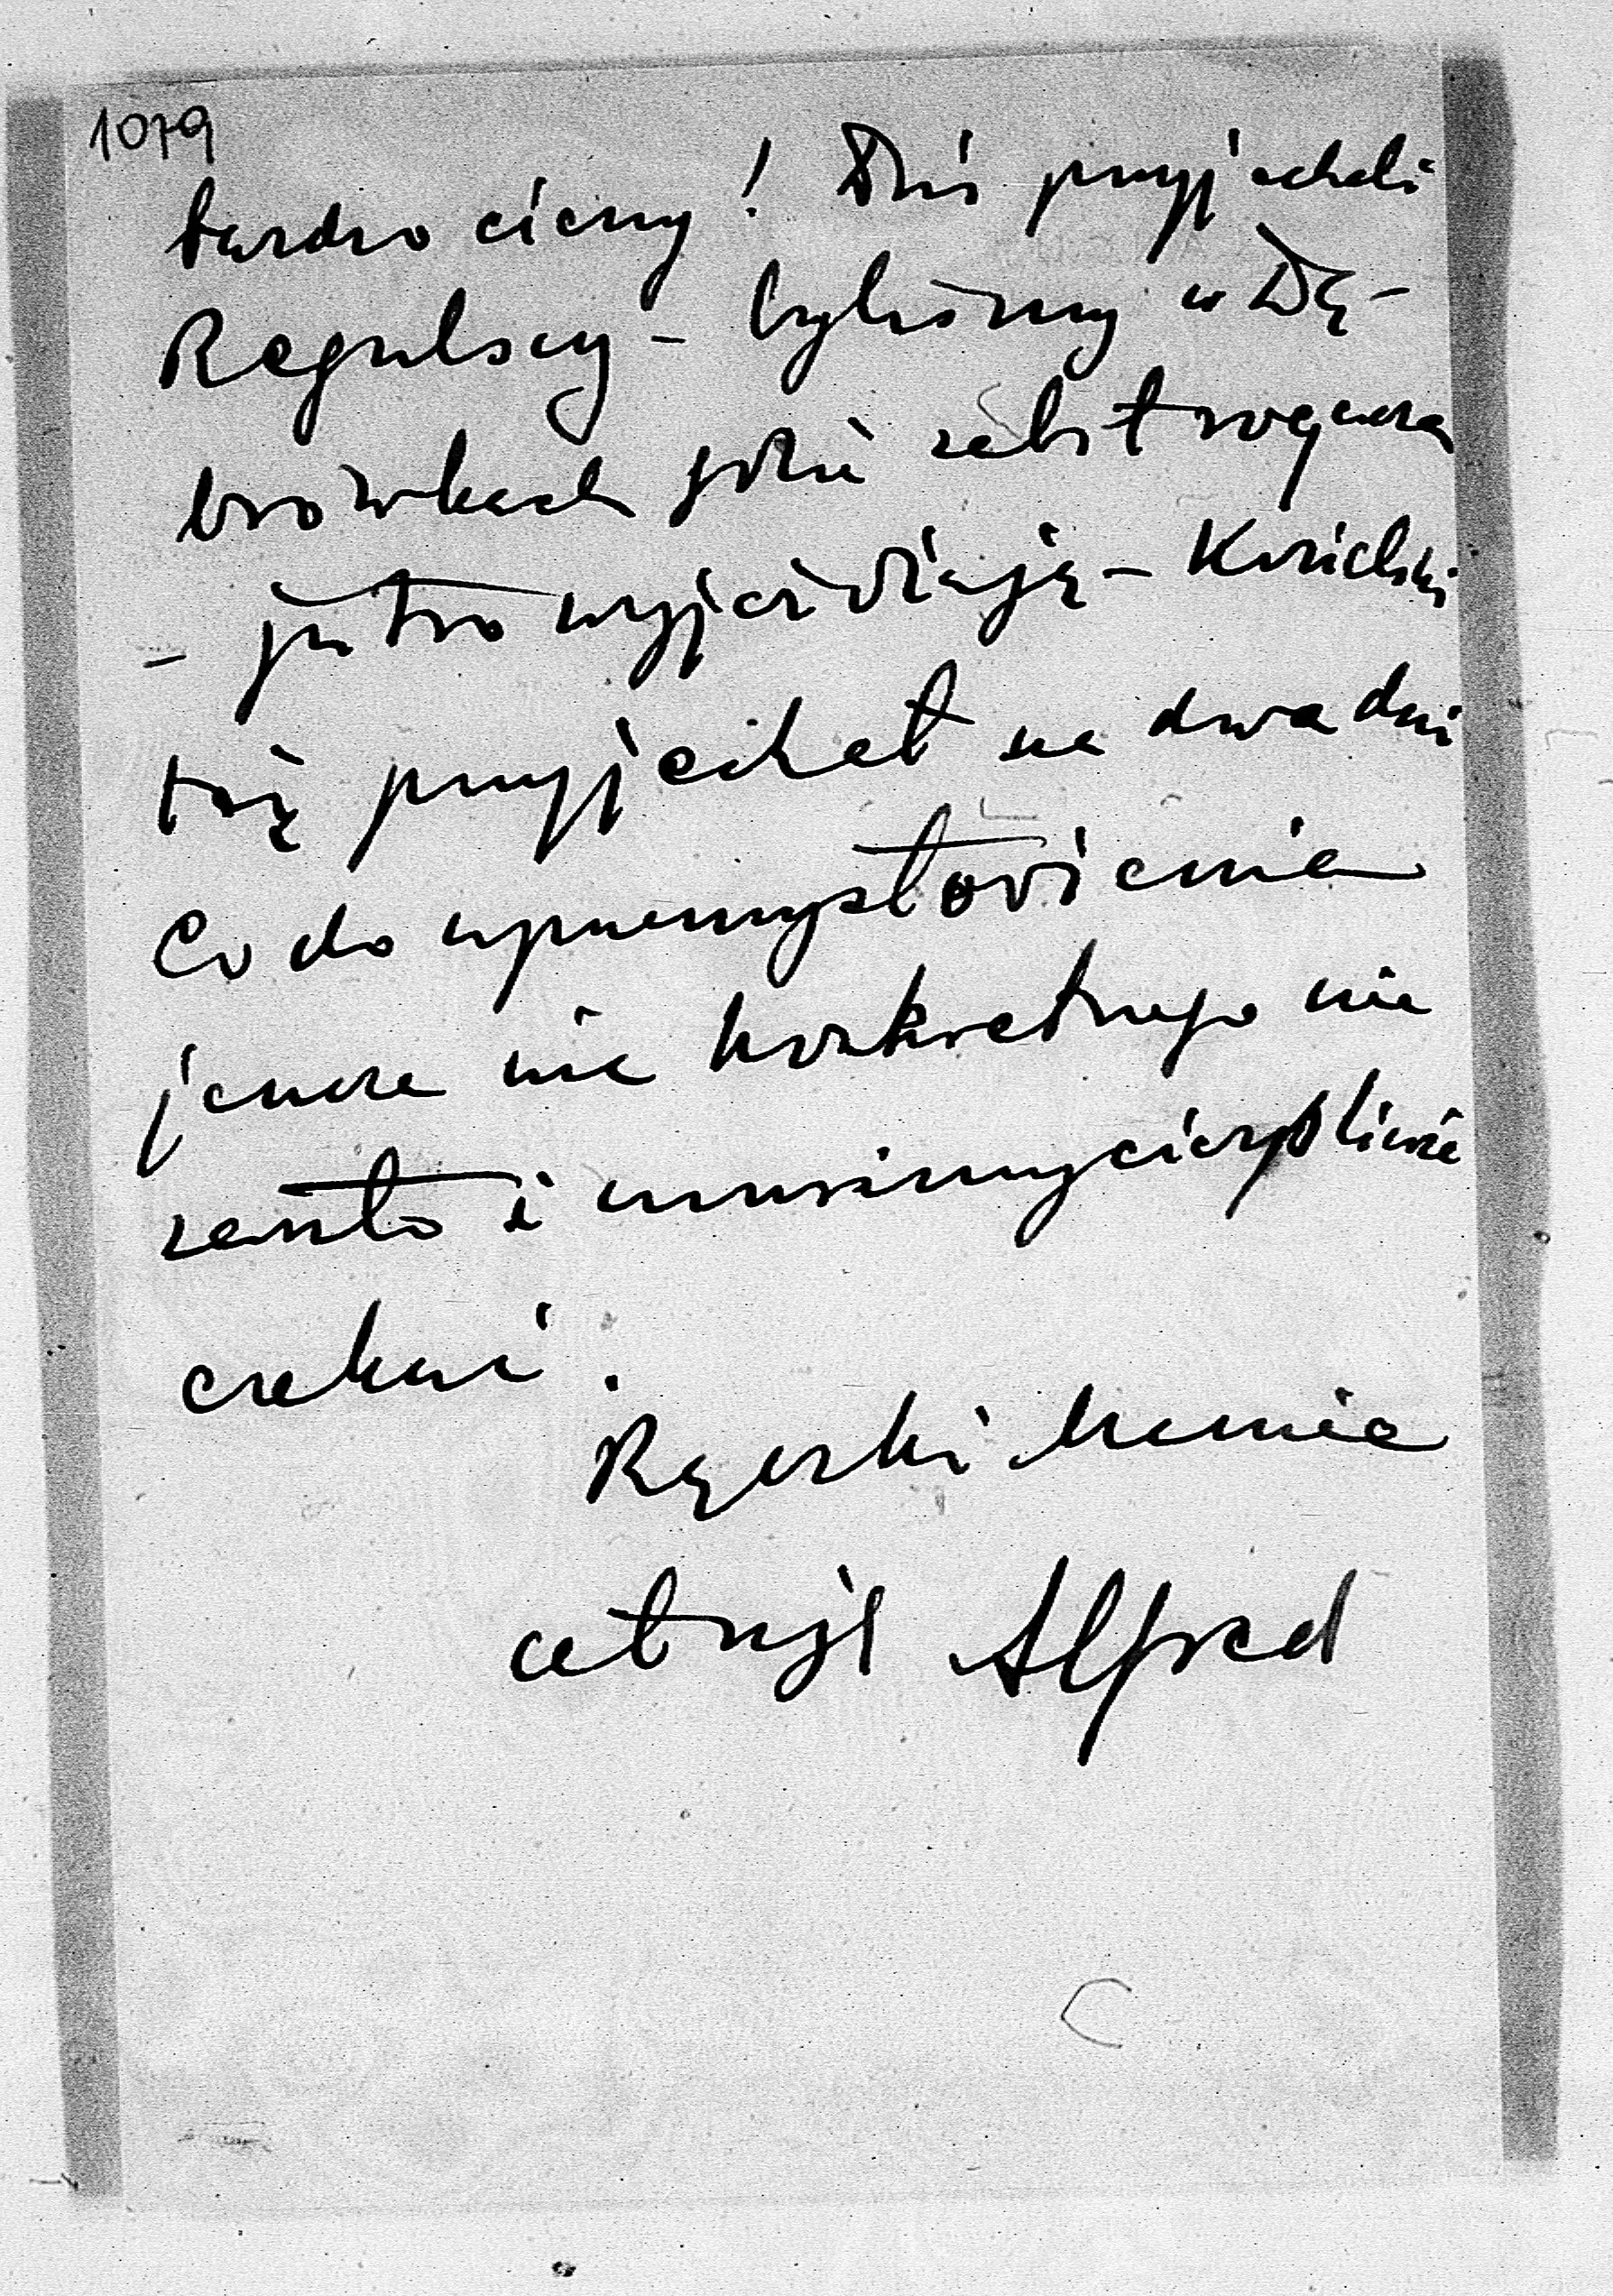 1079
bardzo cieszy! Dziś przyjechali
Regulscy – byliśmy w Dą-
brówkach gdzie zabit rogacza
– jutro wyjeżdżają – Kozielski
też przyjechał na dwa dni
Co do uprzemysłowienia
jeszcze nic konkretnego nie
zaszło i musimy cierpliwie
czekać.
Rączki Mamie
całuję Alfred